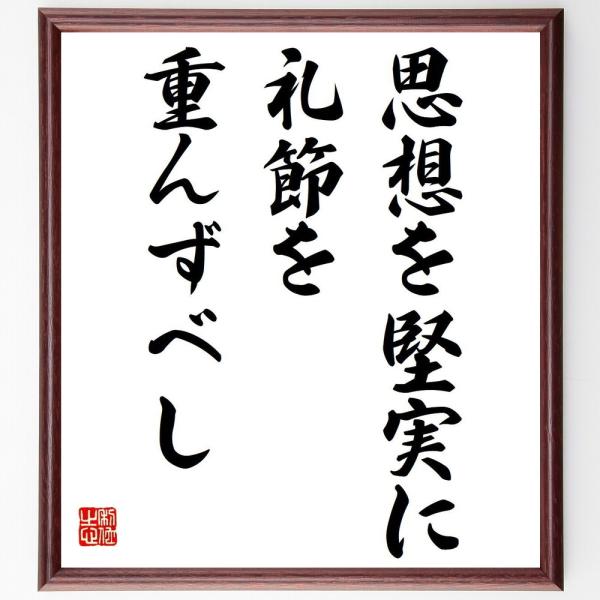 思想を堅実に
礼節を
重んずべし